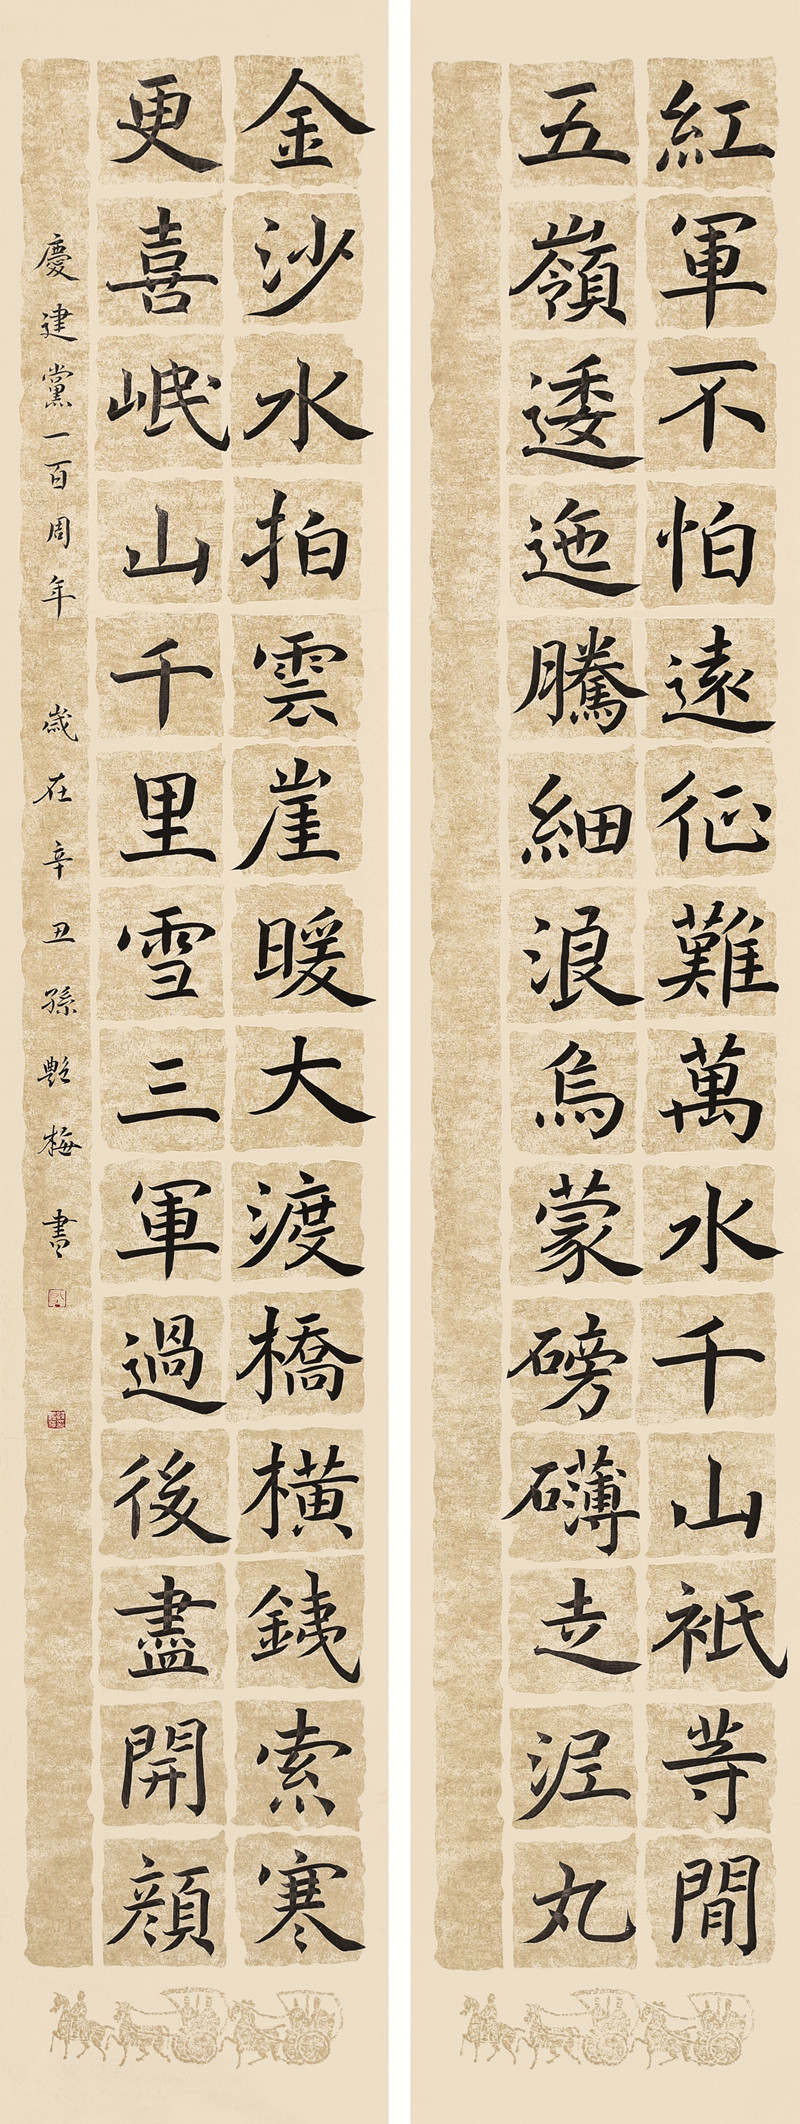 紅軍不怕遠征難萬水千山祇等閒
五嶺逶迤騰細浪烏蒙磅礴走泥丸
金沙水拍雲崖暖大渡橋橫鐵索寒
更喜岷山千里雪三軍過後盡開顏
慶建黨一百周年 歲在辛丑孫艷梅書